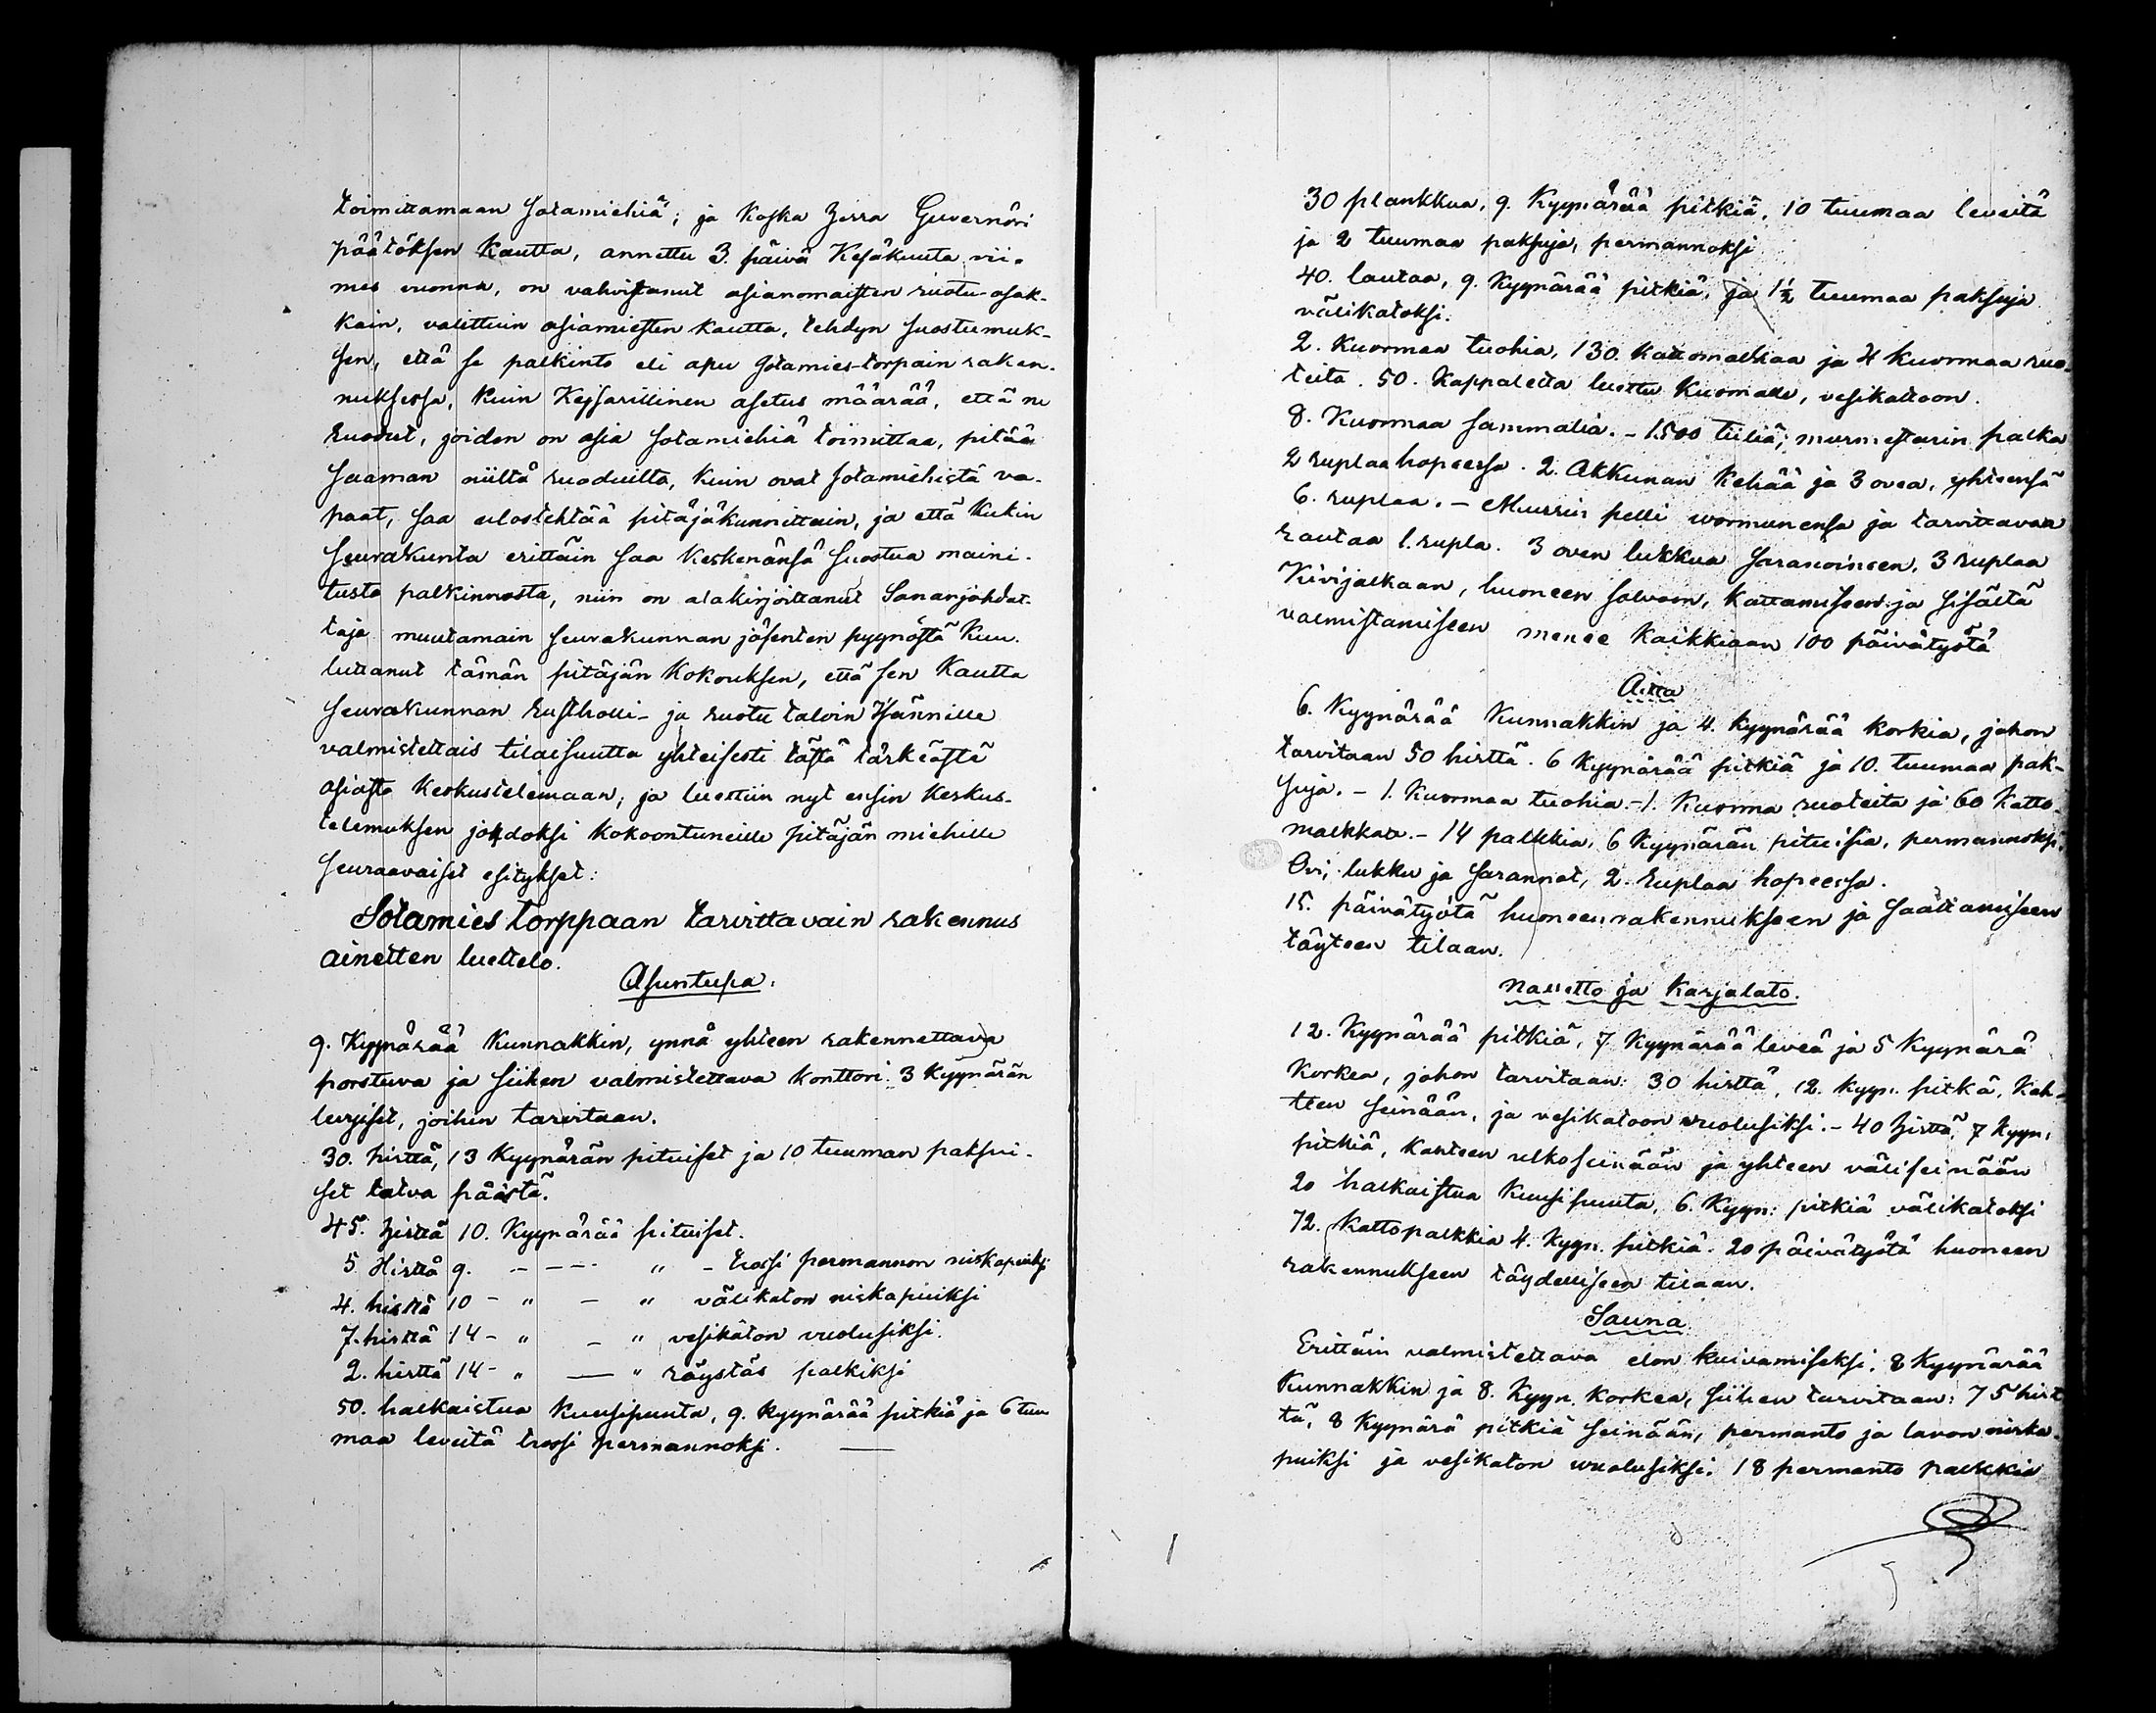 toimittamaan sotamiehiä; ja koska Herra Guvernöri
päätöksen kautta, annettu 3. päivä Kesäkuuta vii-
mes vuonna, on vahvistanut asianomaisten ruotu-osak-
kain, valittuin asiamiesten kautta, tehdyn suostumuk-
sen, että se palkinto eli apu sotamies-torpain raken-
nuksessa, kuin Keisarillinen asetus määrää, että ne
ruodut, joiden on asia sotamiehiä toimittaa, pitää
saaman niiltä ruoduilta, kuin ovat sotamiehistä va-
paat, saa ulostehtää pitäjäkunnittain, ja että kukin
seurakunta erittäin saa keskenänsä suostua maini-
tusta palkinnosta, niin on alakirjoittanut Sananjohdat-
taja muutamain seurakunnan jäsenten pyynöstä kuu-
luttanut tämän pitäjän kokouksen, että sen kautta
seurakunnan rustholli- ja ruotu taloin Isännille
valmistettais tilaisuutta yhteisesti tästä tärkeästä
asiasta keskustelemaan; ja luettiin nyt ensin keskus-
telemuksen johdoksi kokoontuneille pitäjän miehille
seuraavaiset esitykset:
Sotamies torppaan tarvittavain rakennus
ainetten luettelo.
Asuntupa.
9. Kyynärää kunnakkin, ynnä yhteen rakennettava
porstuva ja siihen valmistettava konttori 3 kyynärän
levyiset, joihin tarvitaan.
30. hirttä, 13 Kyynärän pituiset ja 10 tuuman paksui-
set latva päästä.
45. hirttä 10. Kyynärää pituiset.
5 Hirttä 9. - - - - " - trossi permannon niskapuiksi
4. hirttä 10 - " - " välikaton niskapuiksi
7. hirttä 14 - " - " vesikaton vuolusiksi.
2. hirttä 14 - " — " räystäs palkiksi
50. halkaistua kuusipuuta, 9. kyynärää pitkiä ja 6 tuu
maa leveitä trossi permannoksi. —
30 plankkua, 9. Kyynärää pitkiä, 10 tuumaa leveitä
ja 2 tuumaa paksuja, permannoksi
40. lautaa, 9. kyynärää pitkiä, ja 1½ tuumaa paksuja
välikatoksi.
2. kuormaa tuohia, 130. kattomalkaa ja 4 kuormaa ruo-
teita. 50. kappaletta luettu kuormalle, vesikattoon.
8. Kuormaa sammalia. - 1500 tiiliä; murmestarin palka
2 ruplaa hopeessa. 2. Akkunan kehää ja 3 ovea, yhteensä
6. ruplaa. - Muurin pelli wormunensa ja tarvittavaa
rautaa 1. rupla. 3 oven lukkua saranoineen, 3 ruplaa
Kivijalkaan, huoneen salvoon, kattamiseen ja sisältä
valmistamiseen menee kaikkiaan 100 päivätyötä
Aitta
6. Kyynärää kunnakkin ja 4. kyynärää korkia, johon
tarvitaan 50 hirttä. 6 kyynärää pitkiä ja 10. tuumaa pak-
suja. - 1. kuormaa tuohia. - 1. kuorma ruoteita ja 60 katto-
malkkaa. - 14 palkkia, 6 kyynärän pituisia, permannoksi.
Ovi, lukku ja sarannot, 2. ruplaa hopeessa.
15. päivätyötä huoneenrakennukseen ja saattamiseen
täyteen tilaan.
Navetto ja karjalato.
12. Kyynärää pitkiä, 7 kyynärää leveä ja 5 kyynärä
korkea, johon tarvitaan: 30 hirttä, 12. kyyn. pitkä, kah-
teen seinään, ja vesikatoon vuolusiksi. - 40 hirttä, 7 kyyn.
pitkiä, kahteen ulkoseinään ja yhteen väliseinään
20 halkaistua kuusipuuta, 6. kyyn: pitkiä välikatoksi
72. kattopalkkia 4. kyyn. pitkiä. 20 päivätyötä huoneen
rakennukseen täydelliseen tilaan.
Sauna
Erittäin valmistettava elon kuivamiseksi. 8 Kyynärää
kunnakkin ja 8. kyyn. korkea, siihen tarvitaan: 75 hirt
tä, 8 kyynärä pitkiä seinään, permanto ja lavon niska-
puiksi ja vesikaton vuolusiksi. 18 permanto palkkia